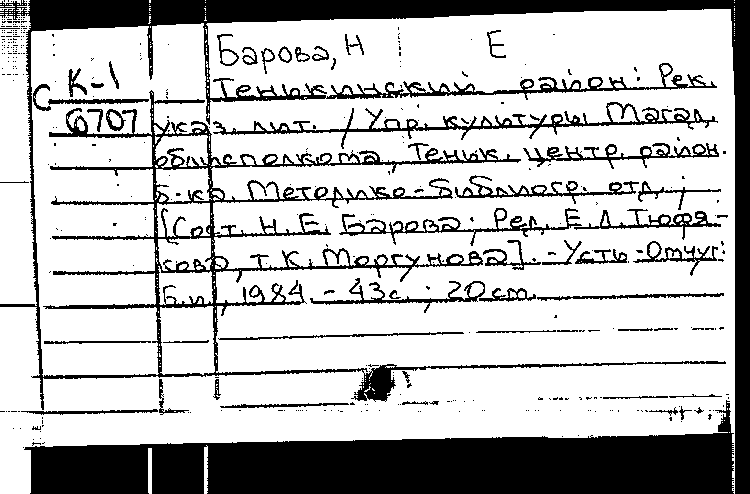 Барова, Н Е
С К-1 Тенькинский район: Рек.
6707 указ. лит. / Упр. культуры Магад.
облисполкома, Теньк. центр. район.
б-ка. Методико-библиогр. отд.;
[Сост. Н. Е. Барова; Ред. Е. Л. Тюфя-
кова, Т. К. Моргунова]. - Усть-Омчуг:
Б.и., 1984. - 43с.; 20 cm.